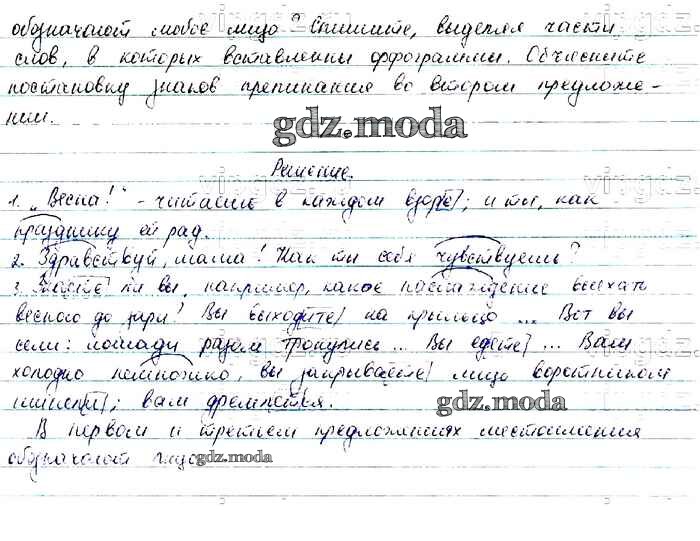 обозначают любое лицо? Спишите, выделяя части
слов, в которых вставлены орфограммы. Объясните
постановку знаков препинания во втором предложе-
нии.
gdz.moda
Решение.
1. „Весна!" - читаешь в каждом взоре; и ты, как
празднику ей рад.
2. Здравствуй, мама! Как ты себя чувствуешь?
3. Знаете ли вы, например, какое наслаждение выехать
весною до зари? Вы выходите на крыльцо ... Вот вы
сели: лошади разом тронулись... Вы едете ... Вам
холодно немножко, вы закрываете лицо воротником
шинели; вам дремлется.
gdz.moda
В первом и третьем предложениях местоимения
обозначают лицо
gdz.moda